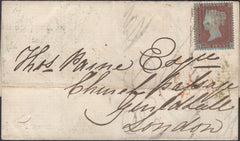 Thos Paine Esqre
Church Passage
Guildhall
London